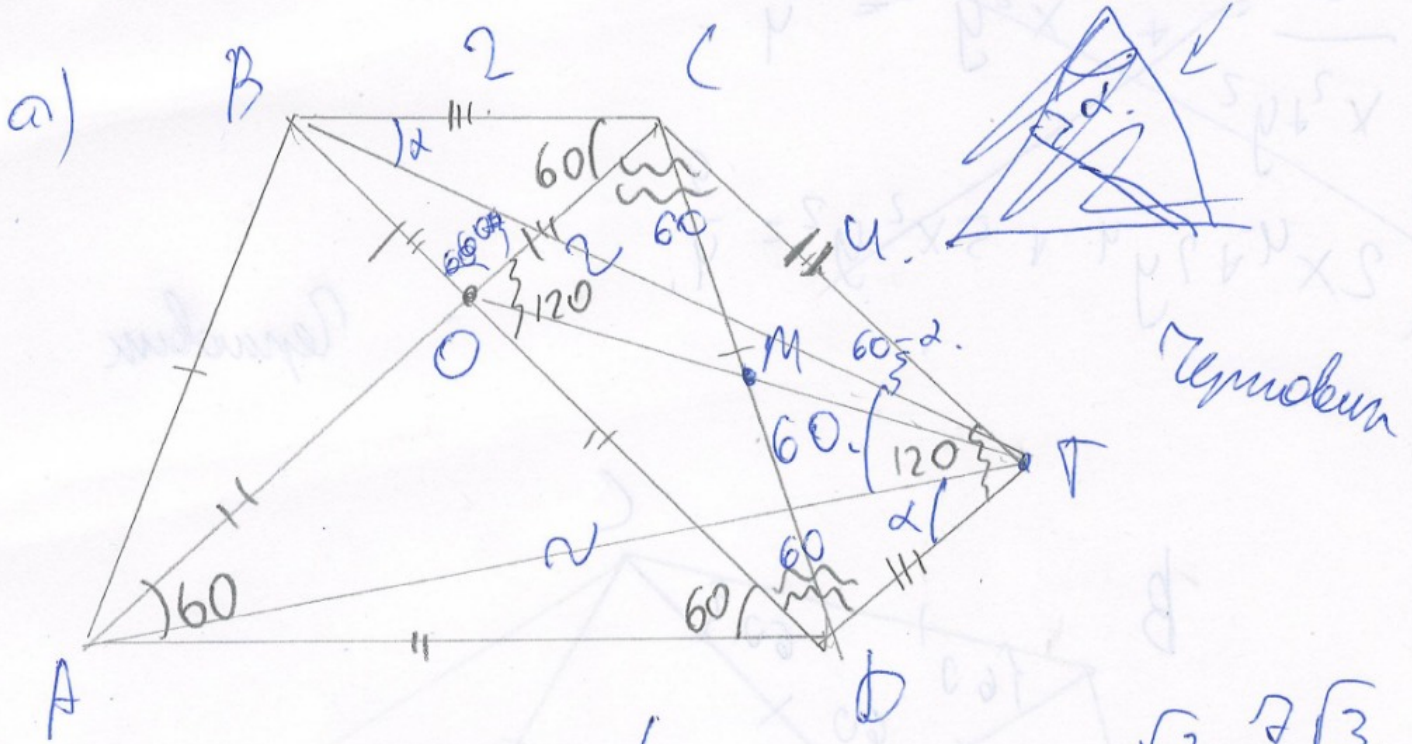 а) B 2 C
α
60
60
2
4.
120
O
M
60-α.
60.
120
T
α
60
60
60
A
D
α.
Черновик
√3 7√3